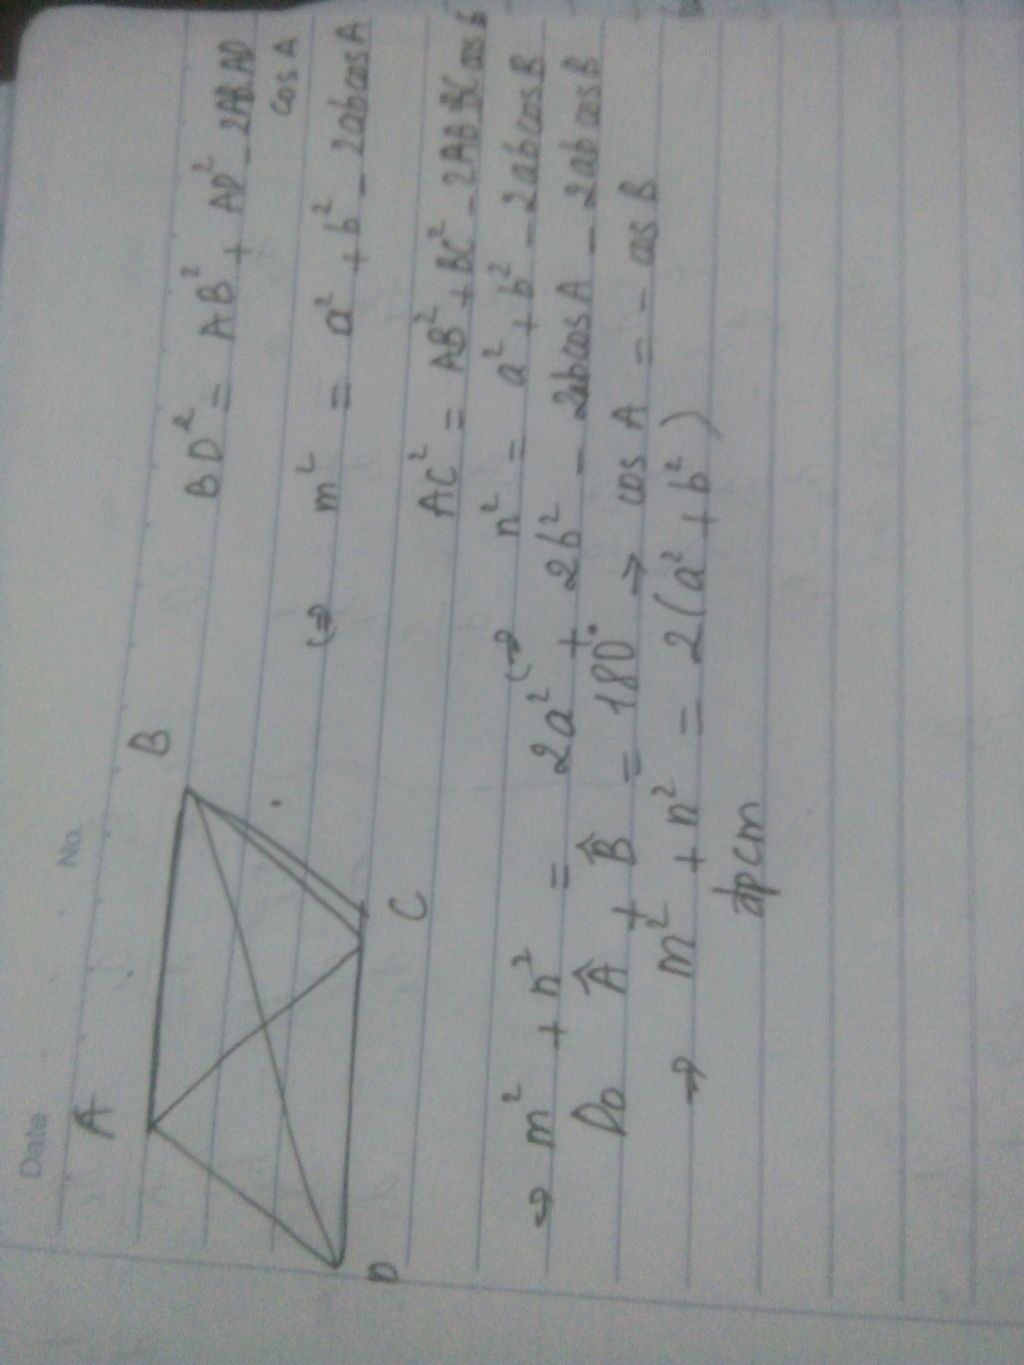 Date
No.
A
B
D
C
BD² = AB² + AD² - 2AB.AD
cosA
(⇒ m² = a² + b² - 2abcosA
AC² = AB² + BC² - 2AB BC cos B
(⇒ n² = a² + b² - 2abcosB
⇒ m² + n² = 2a² + 2b² - 2abcosA - 2abcosB
Do Â + B̂ = 180° → cos A = - cos B
⇒ m² + n² = 2(a² + b²)
đpcm